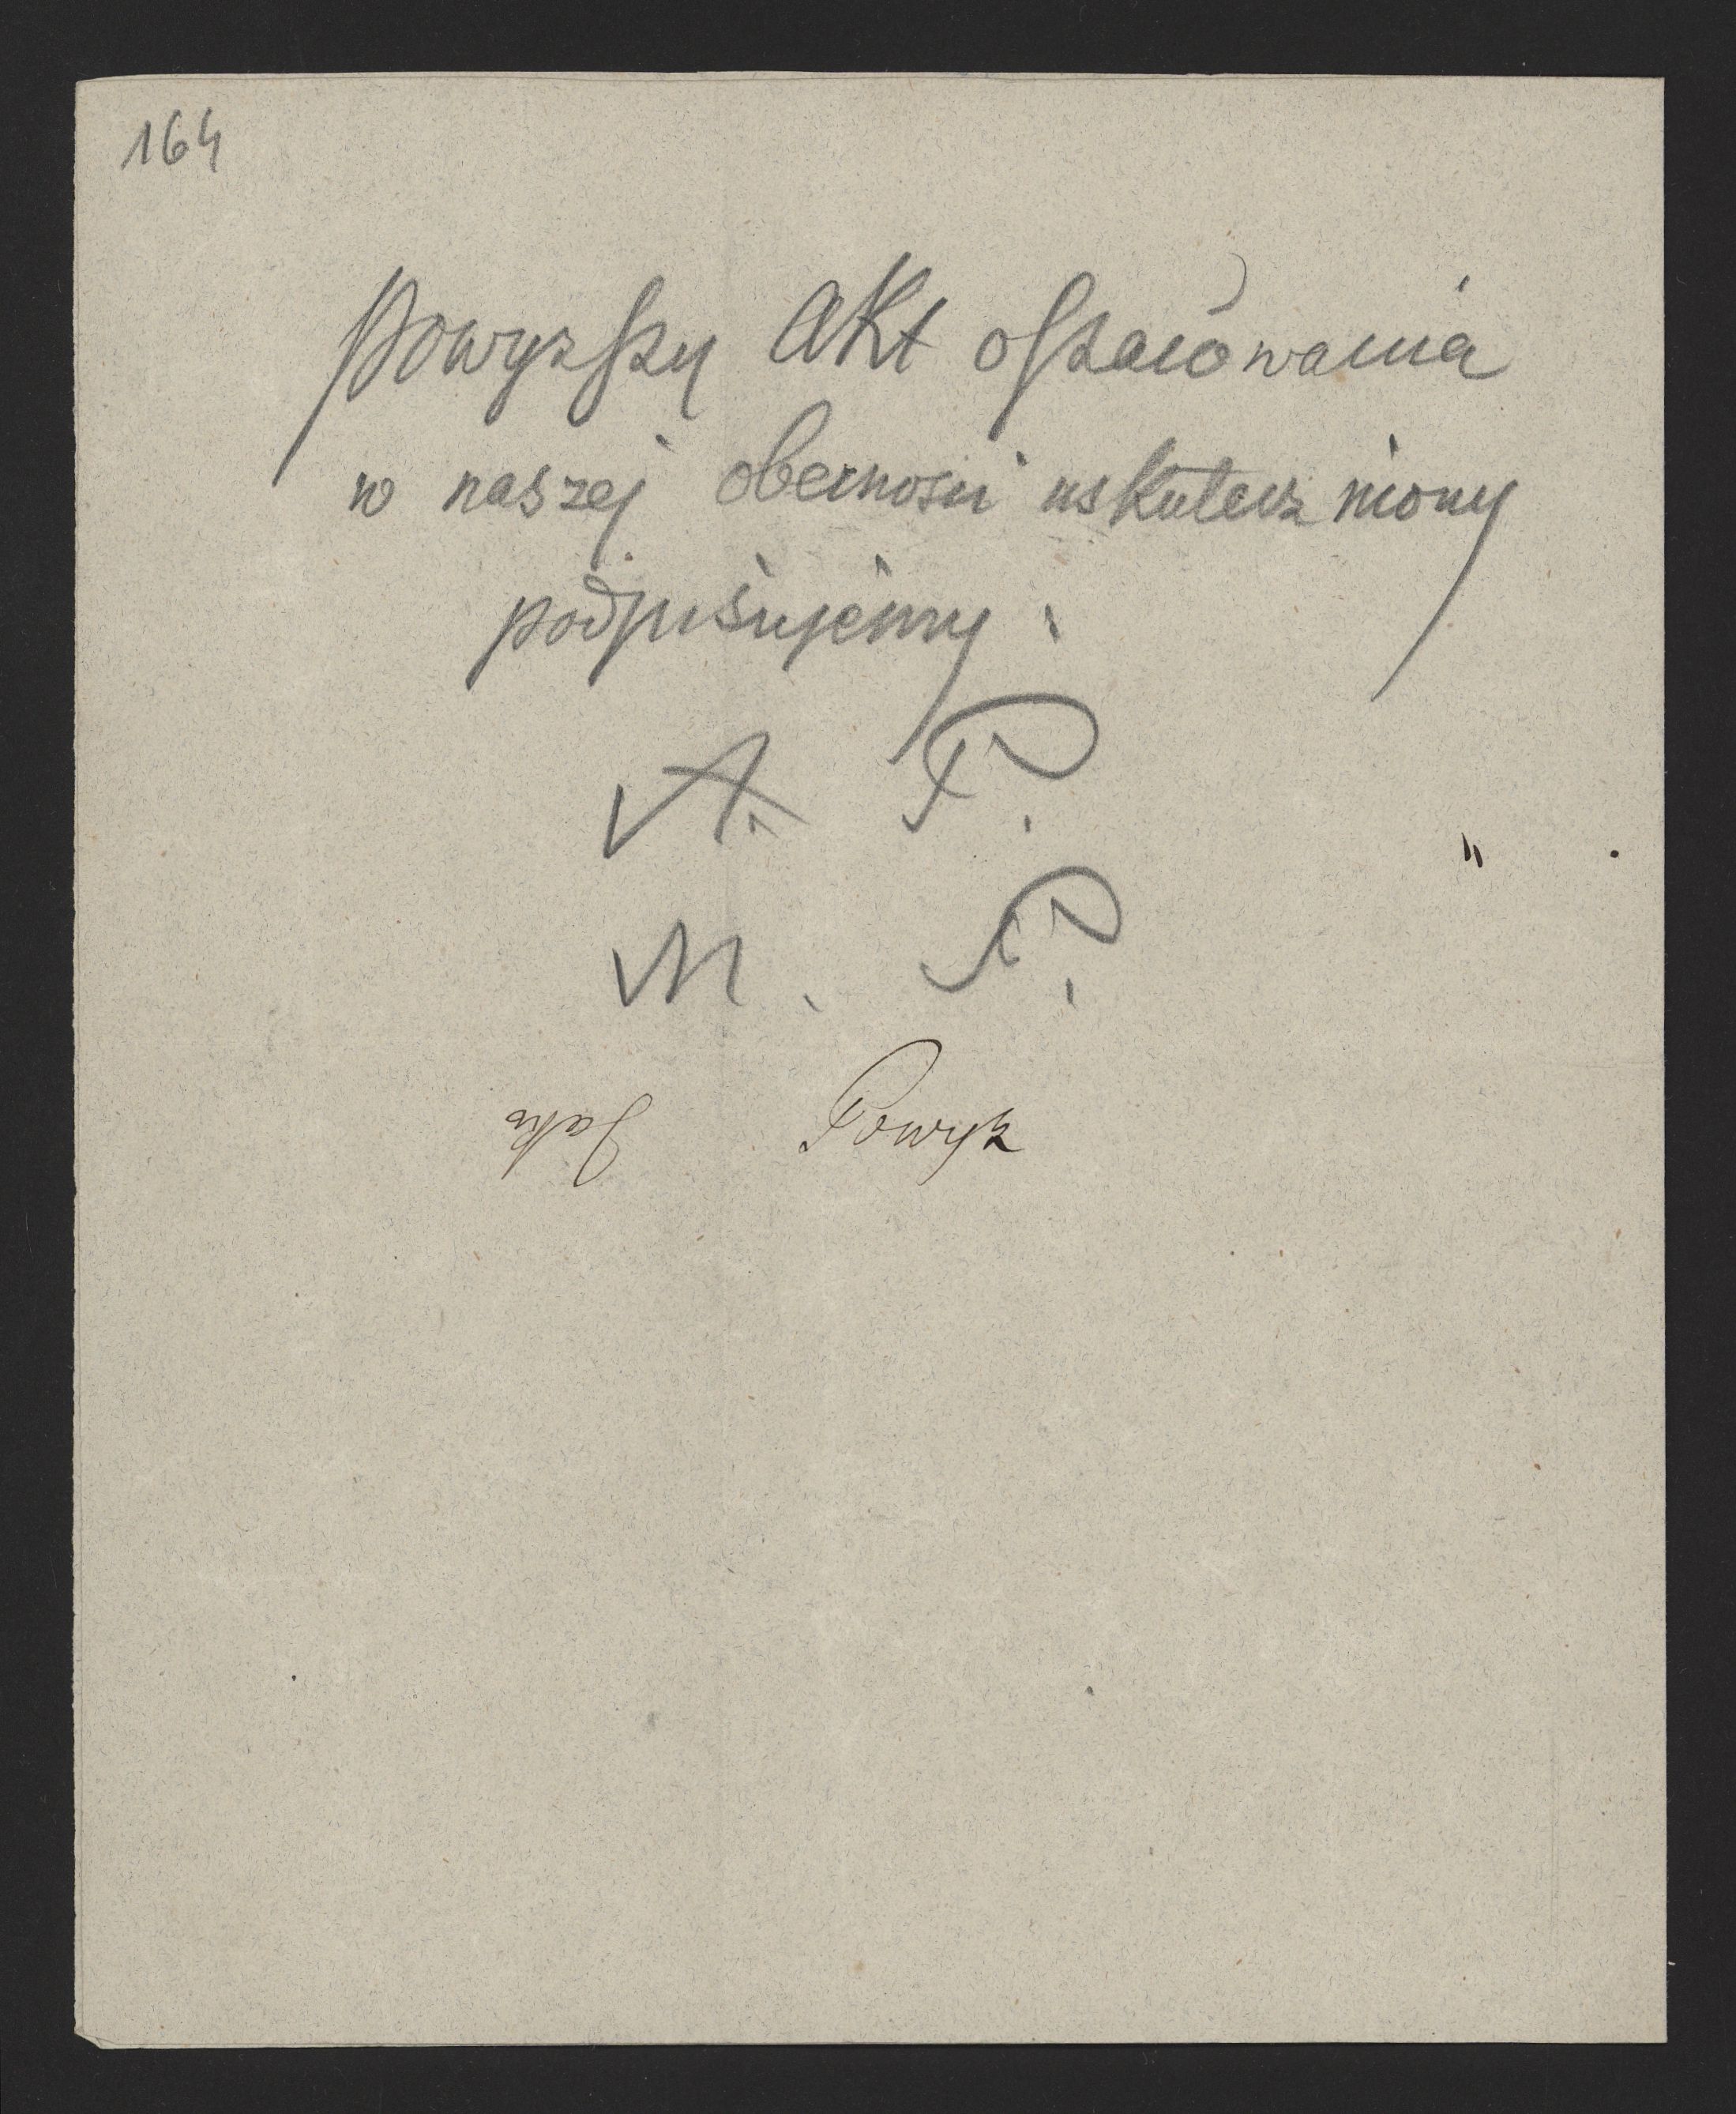 164
Powyzszy akt oszacowania
w naszej obecnosci uskutecz niony
podpisujemy.
A. P.
M. P.
Powyz